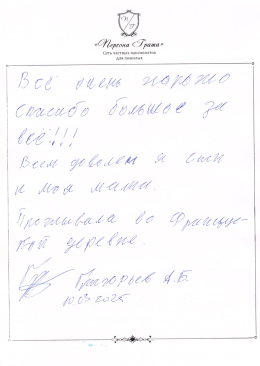 «Перелка Грата»
Сеть частных пансионатов
для пожилых
Всё очень хорошо
Спасибо большое за
всё!!!
Всем доволен я сын
и моя мама.
Проживала во Францус-
кой деревне.
Григорьев А.Б.
10.03.2025